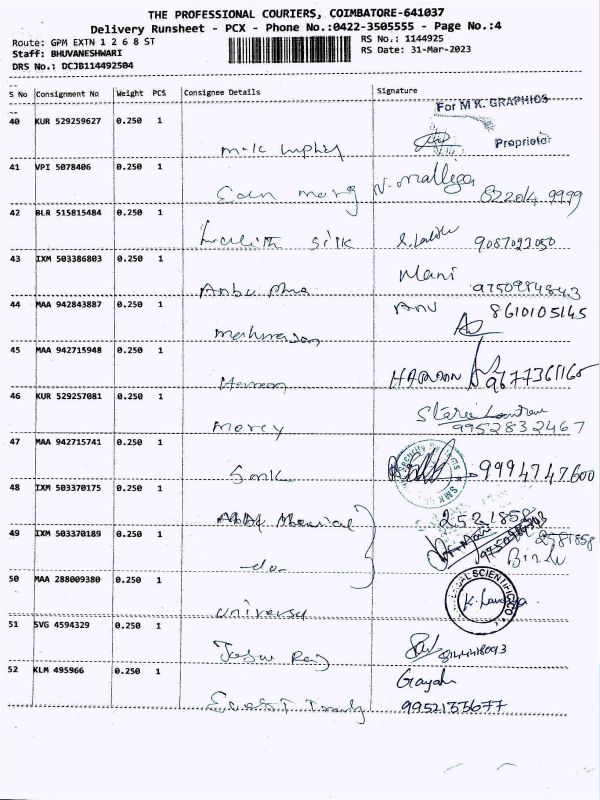 THE PROFESSIONAL COURIERS, COIMBATORE-641037
Delivery Runsheet - PCX - Phone No.:0422-3505555 - Page No.:4
Route: GPM EXTN 1 2 6 8 ST
RS No.: 1144925
Staff: BHUVANESHWARI
RS Date: 31-Mar-2023
DRS No.: DCJB114492504
S No Consignment No Weight PCS Consignee Details Signature
For M.K. GRAPHICS
40 KUR 529259627 0.250 1
Proprietor
M-K
41 VPI 5078406 0.250 1
N. Malliga
82204 9999
42 BLR 515815484 0.250 1
Lalith Silk 9087023050
43 IXM 503386803 0.250 1
Mani
Anbu 9750984843
44 MAA 942843887 0.250 1
ANU 8610105145
45 MAA 942715948 0.250 1
HAROON 9677361165
46 KUR 529257081 0.250 1
Mercy 9952832467
47 MAA 942715741 0.250 1
SMK 9994747600
48 IXM 503370175 0.250 1
2521858
49 IXM 503370189 0.250 1
2581858
-do- Bindu
50 MAA 288009380 0.250 1
SCIENTIFIC CO
K.
51 SVG 4594329 0.250 1
Raj
52 KLM 495966 0.250 1
Gayathri
9952135677